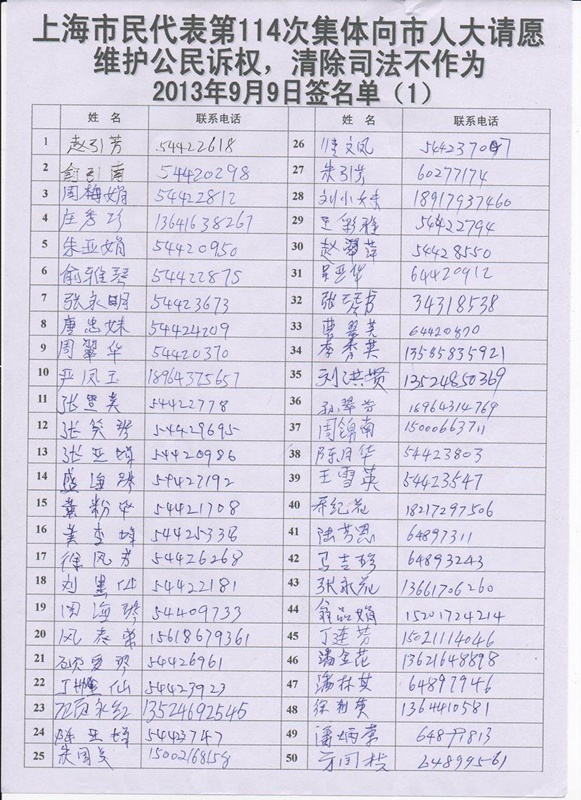 上海市民代表第114次集体向市人大请愿
维护公民诉权，清除司法不作为
2013年9月9日签名单（1）
姓 名 联系电话 姓 名 联系电话
1 赵引芳 54422618 26 文凤
2 俞引南 54420298 27 朱引芳 60277174
3 周梅娟 54422812 28 刘小妹 18917937460
4 庄秀珍 13641638267 29 王彩雅 54422794
5 朱亚娟 54420950 30 赵翠萍 54428550
6 俞雅琴 54422875 31 吴亚华 64420912
7 张永明 54423673 32 张 34318538
8 唐忠妹 54424209 33 曹翠芳 64420870
9 周翠华 54420370 34 秦秀英 13585835921
10 严凤玉 18964375657 35 刘洪贤 13524850369
11 张 美 54422778 36 孙翠芳 18964314769
12 张笑琴 54429695 37 周锦南 15000663711
13 张亚娣 54420986 38 陈月华 54423803
14 盛海琴 54427192 39 王雪英 54423547
15 黄粉华 54421708 40 纪花 18217297506
16 黄 娣 54425338 41 陆芳恩 64897311
17 徐凤芳 54426268 42 马吉珍 64893243
18 刘 仙 54422181 43 张永花 13661706260
19 周海琴 54409733 44 翁品娟 15201724214
20 风 弟 15618679361 45 丁连芳 15021114046
21 琴 54426961 46 潘金花 13621648898
22 仙 54423923 47 潘林英 64897946
23 永红 13524692545 48 徐 英 1364410581
24 陈亚娣 5442 747 49 潘炳 64899813
25 朱国美 15002168158 50 方国 64899561